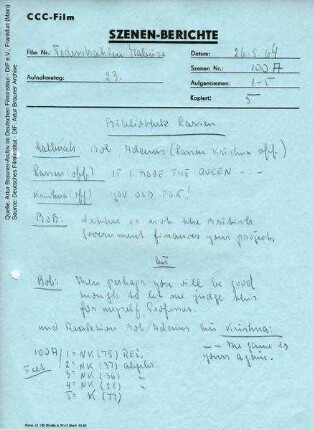 CCC-Film
SZENEN-BERICHTE
Film Nr. Todesstrahlen Mabuse
Datum: 26.5.64
Szenen Nr.: 100 A
Aufnahmetag: 23.
Aufgenommen: 1-5
Kopiert: 5
Bibliothek Larsen
Halbnah: Bob Adams (Larsen Krishna off)
Larsen off: IF I MOVE THE QUEEN - - -
Krishna (off) YOU OLD FOX!
BoB: whether or not the British
Government finances your project.
Bob: Then perhaps you will be good
enough to let me judge this
for myself Professor.
und Reaktion Bob Adams Krishna:
-- the game is
yours again.
100 A / 1= NK (75) Res.
2= NK (37) abgebr.
3= NK (36)
4= NK (28)
5= K (37)
Quelle: Artur Brauner-Archiv im Deutschen Filminstitut - DIF e.V., Frankfurt (Main)
Source: Deutsches Filminstitut - DIF Artur Brauner Archive